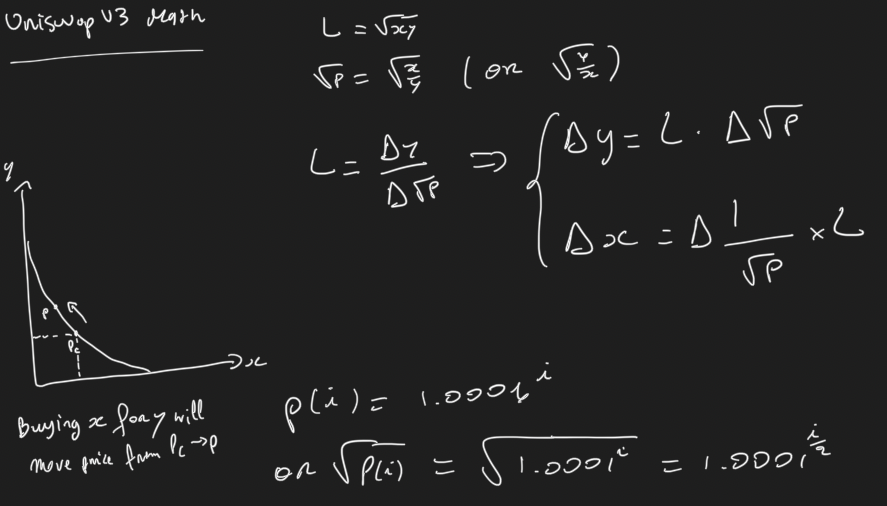 Uniswap V3 Math
L = √xy
√P = √x/y ( or √y/x )
L = Δy/Δ√P ⇒ { Δy = L · Δ√P
Δx = Δ 1/√P × L
y
P
Pc
x
Buying x for y will
move price from Pc → P
p(i) = 1.0001^i
or √P(i) = √1.0001^i = 1.0001^i/2